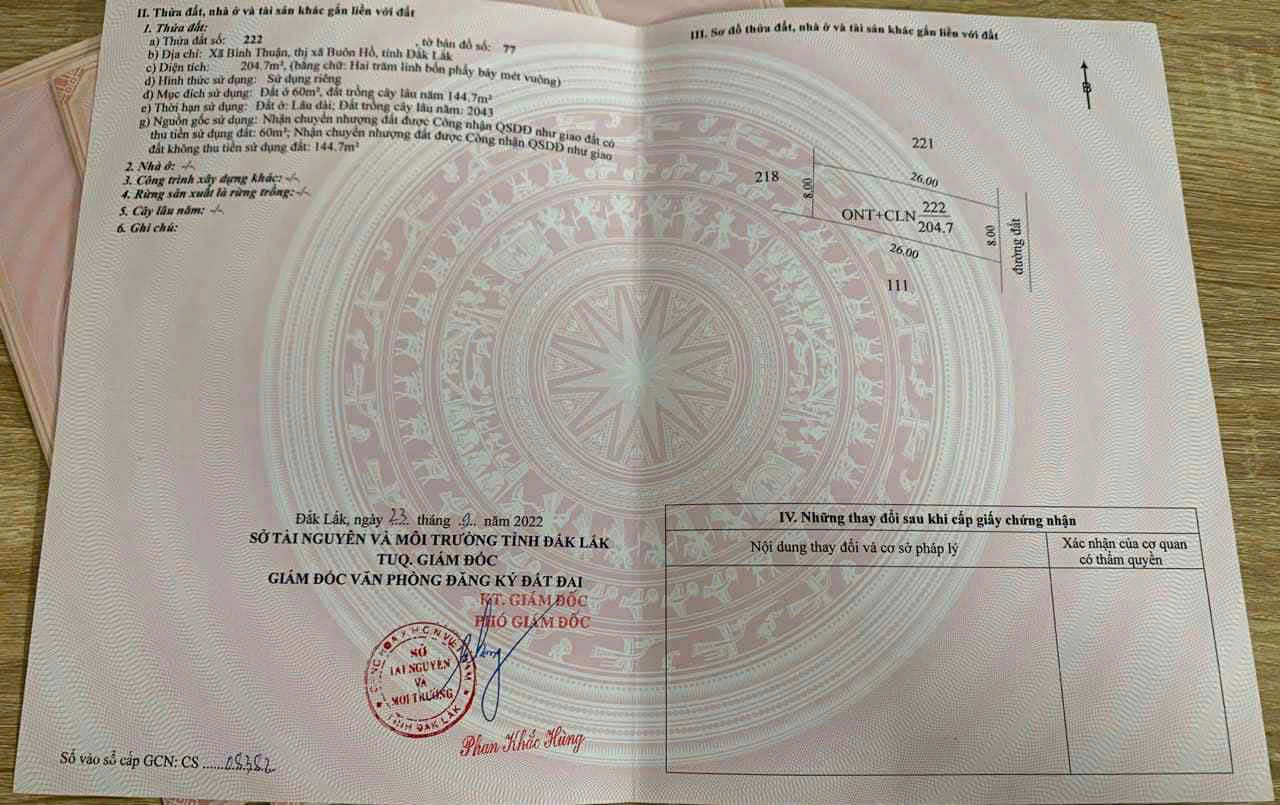 II. Thửa đất, nhà ở và tài sản khác gắn liền với đất
1. Thửa đất:
a) Thửa đất số: 222 , tờ bản đồ số: 77
b) Địa chỉ: Xã Bình Thuận, thị xã Buôn Hồ, tỉnh Đắk Lắk
c) Diện tích: 204.7m², (bằng chữ: Hai trăm linh bốn phẩy bảy mét vuông)
d) Hình thức sử dụng: Sử dụng riêng
đ) Mục đích sử dụng: Đất ở 60m², đất trồng cây lâu năm 144.7m²
e) Thời hạn sử dụng: Đất ở: Lâu dài; Đất trồng cây lâu năm: 2043
g) Nguồn gốc sử dụng: Nhận chuyển nhượng đất được Công nhận QSDĐ như giao đất có
thu tiền sử dụng đất: 60m²; Nhận chuyển nhượng đất được Công nhận QSDĐ như giao
đất không thu tiền sử dụng đất: 144.7m²
2. Nhà ở: -/-
3. Công trình xây dựng khác: -/-
4. Rừng sản xuất là rừng trồng: -/-
5. Cây lâu năm: -/-
6. Ghi chú:
Đắk Lắk, ngày 23 tháng 9 năm 2022
SỞ TÀI NGUYÊN VÀ MÔI TRƯỜNG TỈNH ĐẮK LẮK
TUQ. GIÁM ĐỐC
GIÁM ĐỐC VĂN PHÒNG ĐĂNG KÝ ĐẤT ĐAI
KT. GIÁM ĐỐC
PHÓ GIÁM ĐỐC
CỘNG HÒA X.H.C.N VIỆT NAM
SỞ
TÀI NGUYÊN
VÀ
MÔI TRƯỜNG
TỈNH ĐẮK LẮK
Phan Khắc Hùng
Số vào sổ cấp GCN: CS ......08382
III. Sơ đồ thửa đất, nhà ở và tài sản khác gắn liền với đất
B
221
218
8.00
26.00
ONT+CLN 222
204.7
8.00
đường đất
26.00
111
IV. Những thay đổi sau khi cấp giấy chứng nhận
Nội dung thay đổi và cơ sở pháp lý
Xác nhận của cơ quan
có thẩm quyền